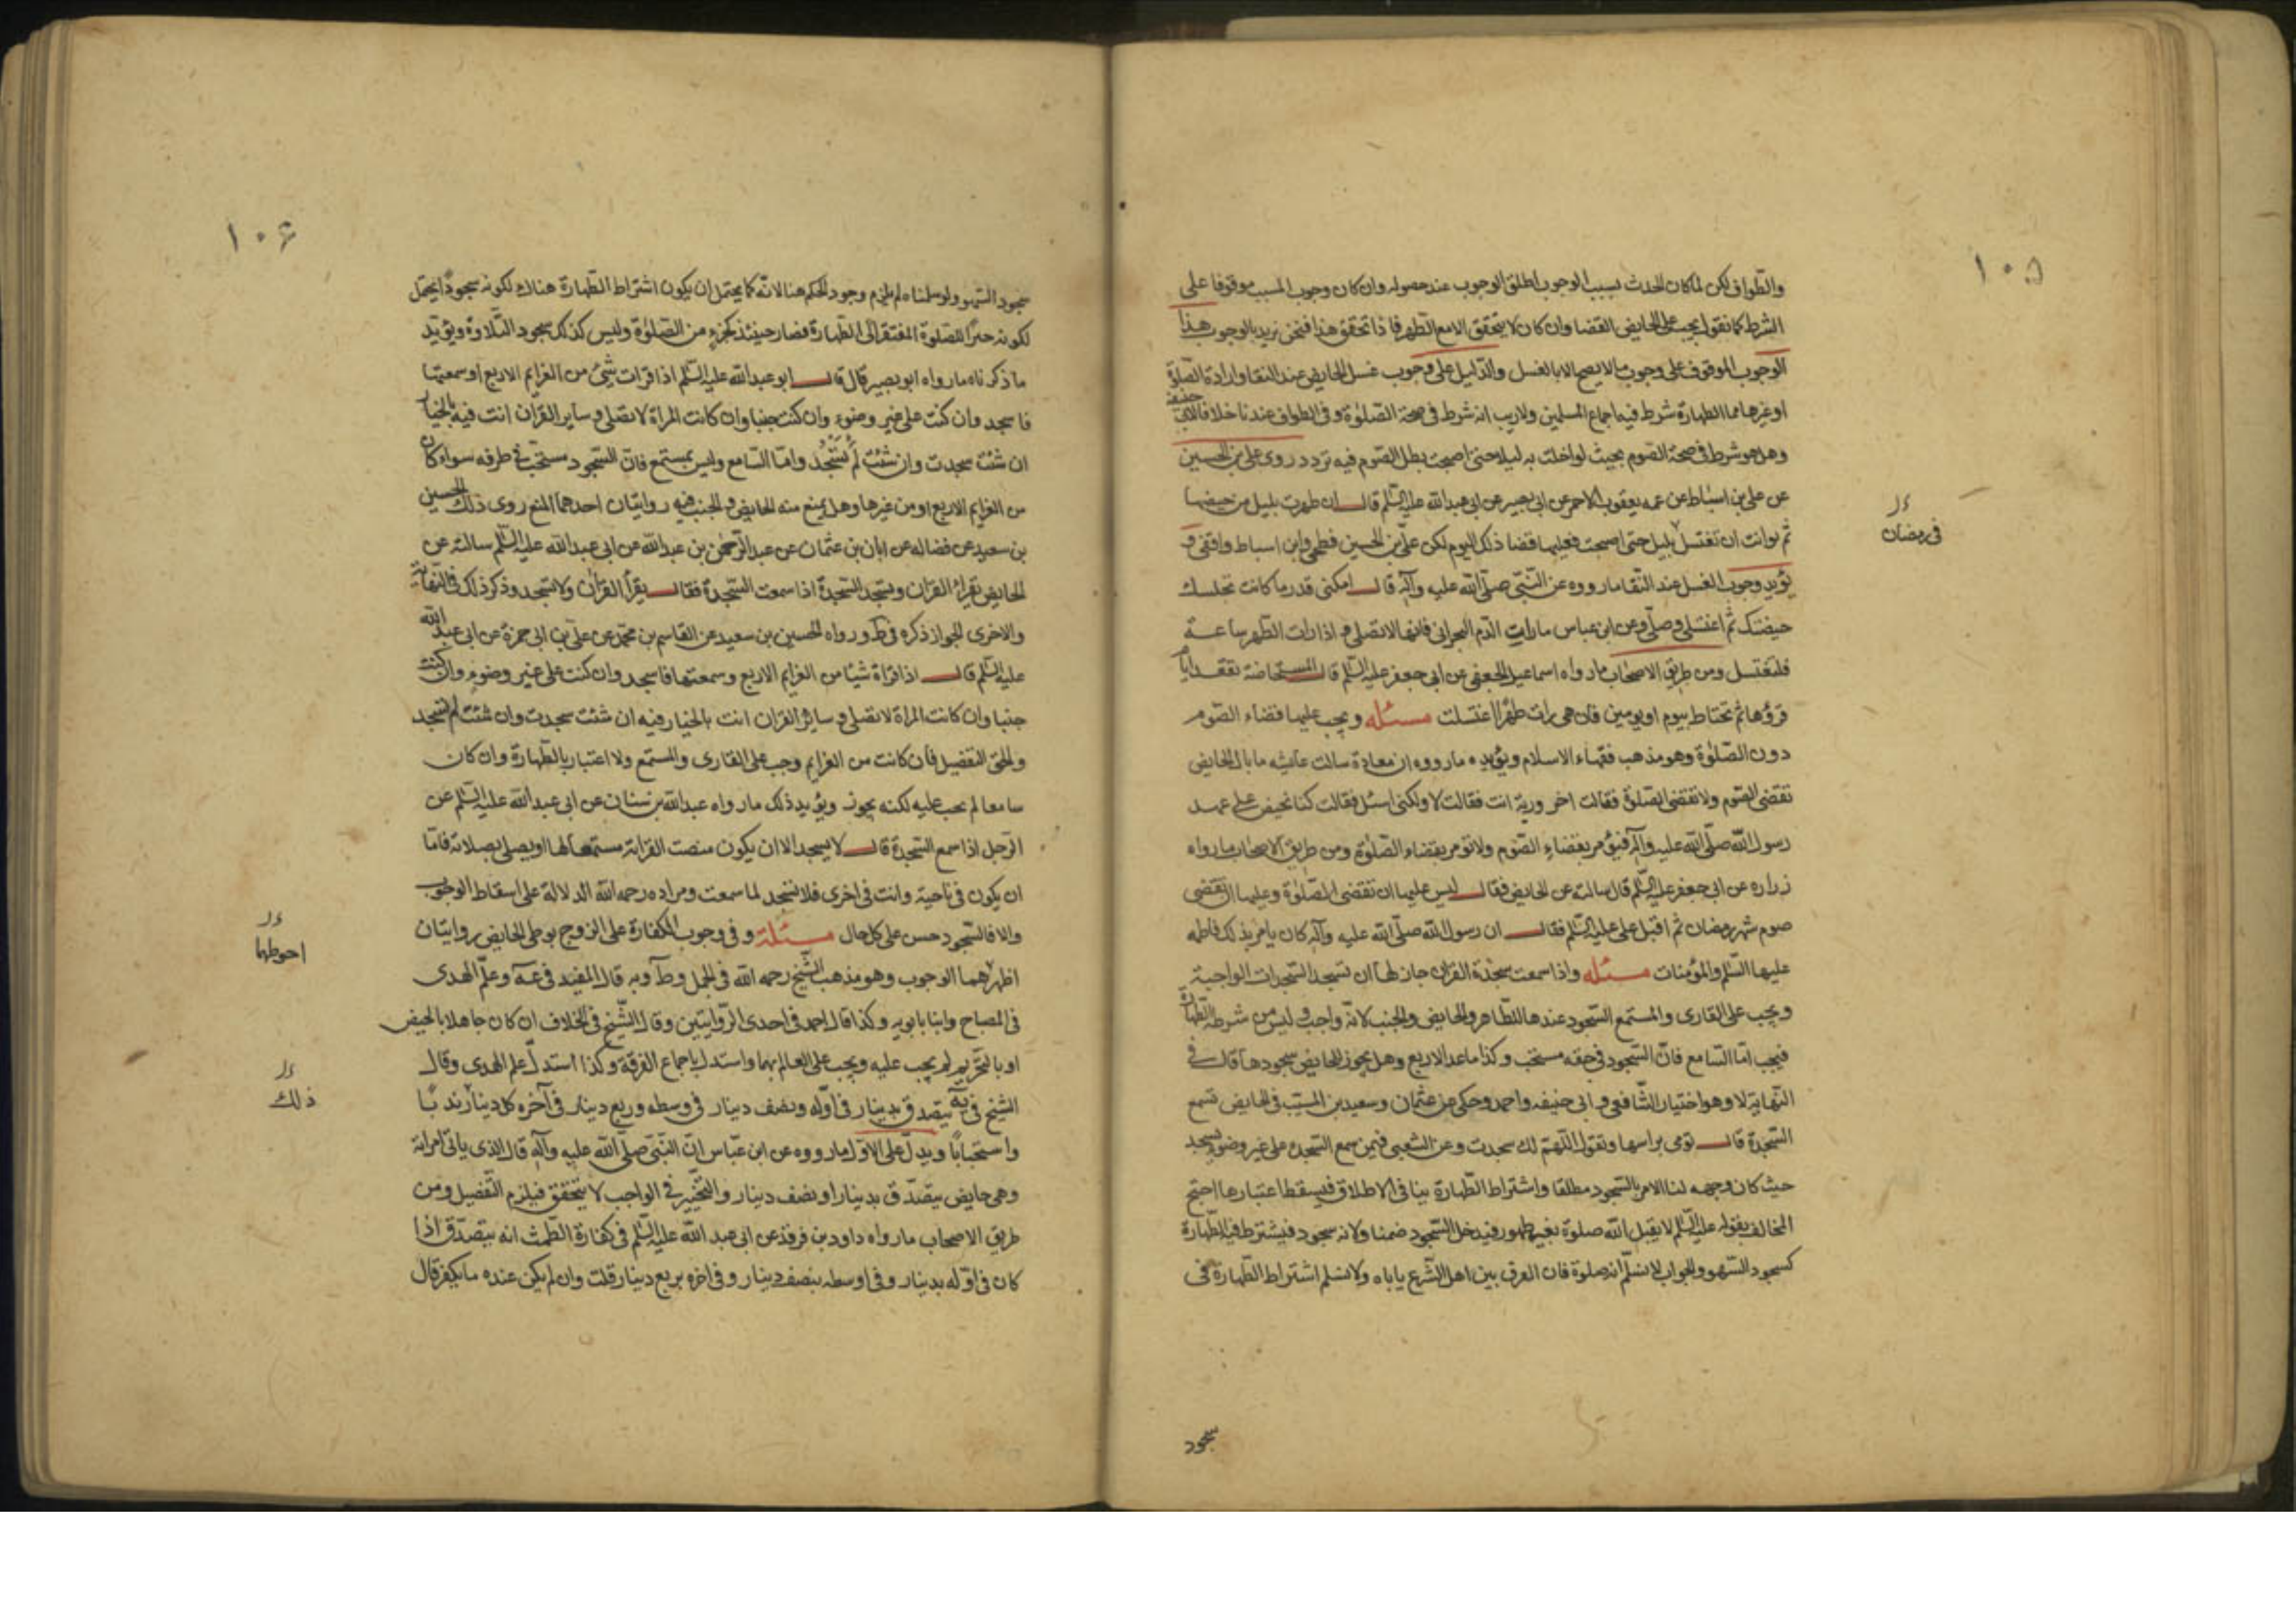 ١٠٥
والطواف لكن لما كان الحدث سبب الوجوب اطلق الوجوب عند حصوله وان كان وجوب المسبب موقوفا على
الشرط كما نقول يجب على الحايض القضا وان كان لا يتحقق الا مع الطهر فاذا تحقق هذا فنحن نريد بالوجوب هذا
الوجوب الموقوف على وجوب ما لا يصح الا بالغسل والدليل على وجوب غسل الحايض عند النقا وارادة الصلوة
او غيرها مما الطهارة شرط فيه اجماع المسلمين ولا ريب انه شرط في صحة الصلوة وفي الطواف عندنا خلافا لابي حنيفة
وهل هو شرط في صحة الصوم بحيث لو اخلت به ليلا حتى اصبحت بطل الصوم فيه تردد روى علي بن الحسين
عن علي بن اسباط عن عمه يعقوب الاحمر عن ابي بصير عن ابي عبد الله عليه السلم قال ان طهرت بليل من حيضها
ثم توانت ان تغتسل بليل حتى اصبحت فعليها قضا ذلك اليوم لكن علي بن الحسين فطحي وابن اسباط واقفي و
في رمضان
يؤيد وجوب الغسل عند النقا ما رووه عن النبي صلى الله عليه وآله قال امكثي قدر ما كانت تجلسك
حيضتك ثم اغتسلي وصلي وعن ابن عباس ما رات الدم البحراني فانها لا تصلي و اذا رات الطهر ساعة
فلتغتسل ومن طريق الاصحاب ما رواه اسماعيل الجعفي عن ابي جعفر عليه السلم قال المستحاضة تقعد ايام
قرؤها ثم تحتاط بيوم او يومين فان هي رات طهرا اغتسلت مسئله ويجب عليها قضاء الصوم
دون الصلوة وهو مذهب فقهاء الاسلام ويؤيده ما رووه ان معاذة سالت عايشه ما بال الحايض
تقضى الصوم ولا تقضى الصلوة فقالت احرورية انت فقالت لا ولكني اسئل فقالت كنا نحيض على عهد
رسول الله صلى الله عليه وآله فنؤمر بقضاء الصوم ولا نؤمر بقضاء الصلوة ومن طريق الاصحاب ما رواه
زراره عن ابي جعفر عليه السلم قال سالته عن الحايض فقال ليس عليها ان تقضى الصلوة وعليها ان تقضى
صوم شهر رمضان ثم اقبل على عليه السلم فقال ان رسول الله صلى الله عليه وآله كان يامر بذلك فاطمه
عليها السلم والمؤمنات مسئله واذا سمعت سجدة القران جاز لها ان تسجد السجدات الواجبة
ويجب على القارى والمستمع السجود عندها للطاهر والحايض والجنب لانه واجب وليس من شرطه الطهارة
فيجب اما السامع فان السجود في حقه مستحب وكذا ما عدا الاربع وهل يجوز للحايض سجودها قال في
النهاية لا وهو اختيار الشافعي و ابي حنيفه واحمد وحكي عن عثمان وسعيد بن المسيب في الحايض تسمع
السجدة قال تومى براسها وتقول اللهم لك سجدت وعن الشعبي فيمن سمع السجدة على غير وضوء يسجد
حيث كان وجهه لنا الامر بالسجود مطلقا واشتراط الطهارة ينافي الاطلاق فيسقط اعتبارها احتج
المخالف بقوله عليه السلم لا يقبل الله صلوة بغير طهور فيدخل السجود ضمنا ولانه سجود فيشترط فيه الطهارة
كسجود السهو والجواب لا نسلم انه صلوة فان العرف بين اهل الشرع ياباه ولا نسلم اشتراط الطهارة في
سجود
١٠٦
سجود السهو ولو سلمناه لم يلزم وجود الحكم هنا لانه كما يحتمل ان يكون اشتراط الطهارة هناك لكونه سجودا يحتمل
لكونه جبرا للصلوة المفتقرة الى الطهارة فصار حينئذ كجزء من الصلوة وليس كذلك سجود التلاوة ويؤيد
ما ذكرناه ما رواه ابو بصير قال قال ابو عبد الله عليه السلم اذا قرات شئ من العزايم الاربع او سمعتها
فاسجد وان كنت على غير وضوء وان كنت جنبا وان كانت المراة لا تصلى و ساير القران انت فيه بالخيار
ان شئت سجدت وان شئت لم تسجد واما السامع وليس بمستمع فان السجود مستحب في طرفه سواء كان
من العزايم الاربع او من غيرها وهل يمنع منه الحايض والجنب فيه روايتان احدهما المنع روى ذلك الحسين
بن سعيد عن فضاله عن ابان بن عثمان عن عبد الرحمن بن عبد الله عن ابي عبد الله عليه السلم سالته عن
الحايض تقراء القران وتسجد السجدة اذا سمعت السجدة فقال يقرأ القران ولا تسجد وذكر ذلك في النهاية
والاخرى الجواز ذكره في ط ورواه الحسين بن سعيد عن القاسم بن محمد عن علي بن ابي حمزة عن ابي عبد الله
عليه السلم قال اذا قراة شيئا من العزايم الاربع وسمعتها فاسجد وان كنت على غير وضوء وان كنت
جنبا وان كانت المراة لا تصلى و سائر القران انت بالخيار فيه ان شئت سجدت وان شئت لم تسجد
والحق التفصيل فان كانت من العزايم وجب على القارى والمستمع ولا اعتبار بالطهارة وان كان
سامعا لم يجب عليه لكنه يجوز ويؤيد ذلك ما رواه عبد الله بن سنان عن ابي عبد الله عليه السلم عن
الرجل اذا سمع السجدة قال لا يسجد الا ان يكون منصت القرائة مستمعا لها او يصلي بصلاته فاما
ان يكون في ناحية وانت في اخرى فلا تسجد لما سمعت ومراده رحمه الله الدلالة على اسقاط الوجوب
والا فالسجود حسن على كل حال مسئلة وفي وجوب الكفارة على الزوج بوطى الحايض روايتان
احوطهما
اظهرهما الوجوب وهو مذهب الشيخ رحمه الله في الجمل وط وبه قال المفيد في عه وعلم الهدى
في المصباح وابنا بابويه وكذا قال احمد في احدى الروايتين وقال الشيخ في الخلاف ان كان جاهلا بالحيض
او بالتحريم لم يجب عليه ويجب على العالم بهما واستدل باجماع الفرقة وكذا استدل علم الهدى وقال
ذلك
الشيخ في يه يتصدق بدينار في اوله ونصف دينار في وسطه وربع دينار في آخره كل ندبا
واستحبابا ويدل على الاول ما رووه عن ابن عباس ان النبي صلى الله عليه وآله قال الذي ياتي امراته
وهي حايض يتصدق بدينار او نصف دينار والتخيير في الواجب لا يتحقق فيلزم التفصيل ومن
طريق الاصحاب ما رواه داود بن فرقد عن ابي عبد الله عليه السلم في كفارة الطمث انه يتصدق اذا
كان في اوله بدينار وفي اوسطه بنصف دينار وفي اخره بربع دينار قلت وان لم يكن عنده ما يكفر قال